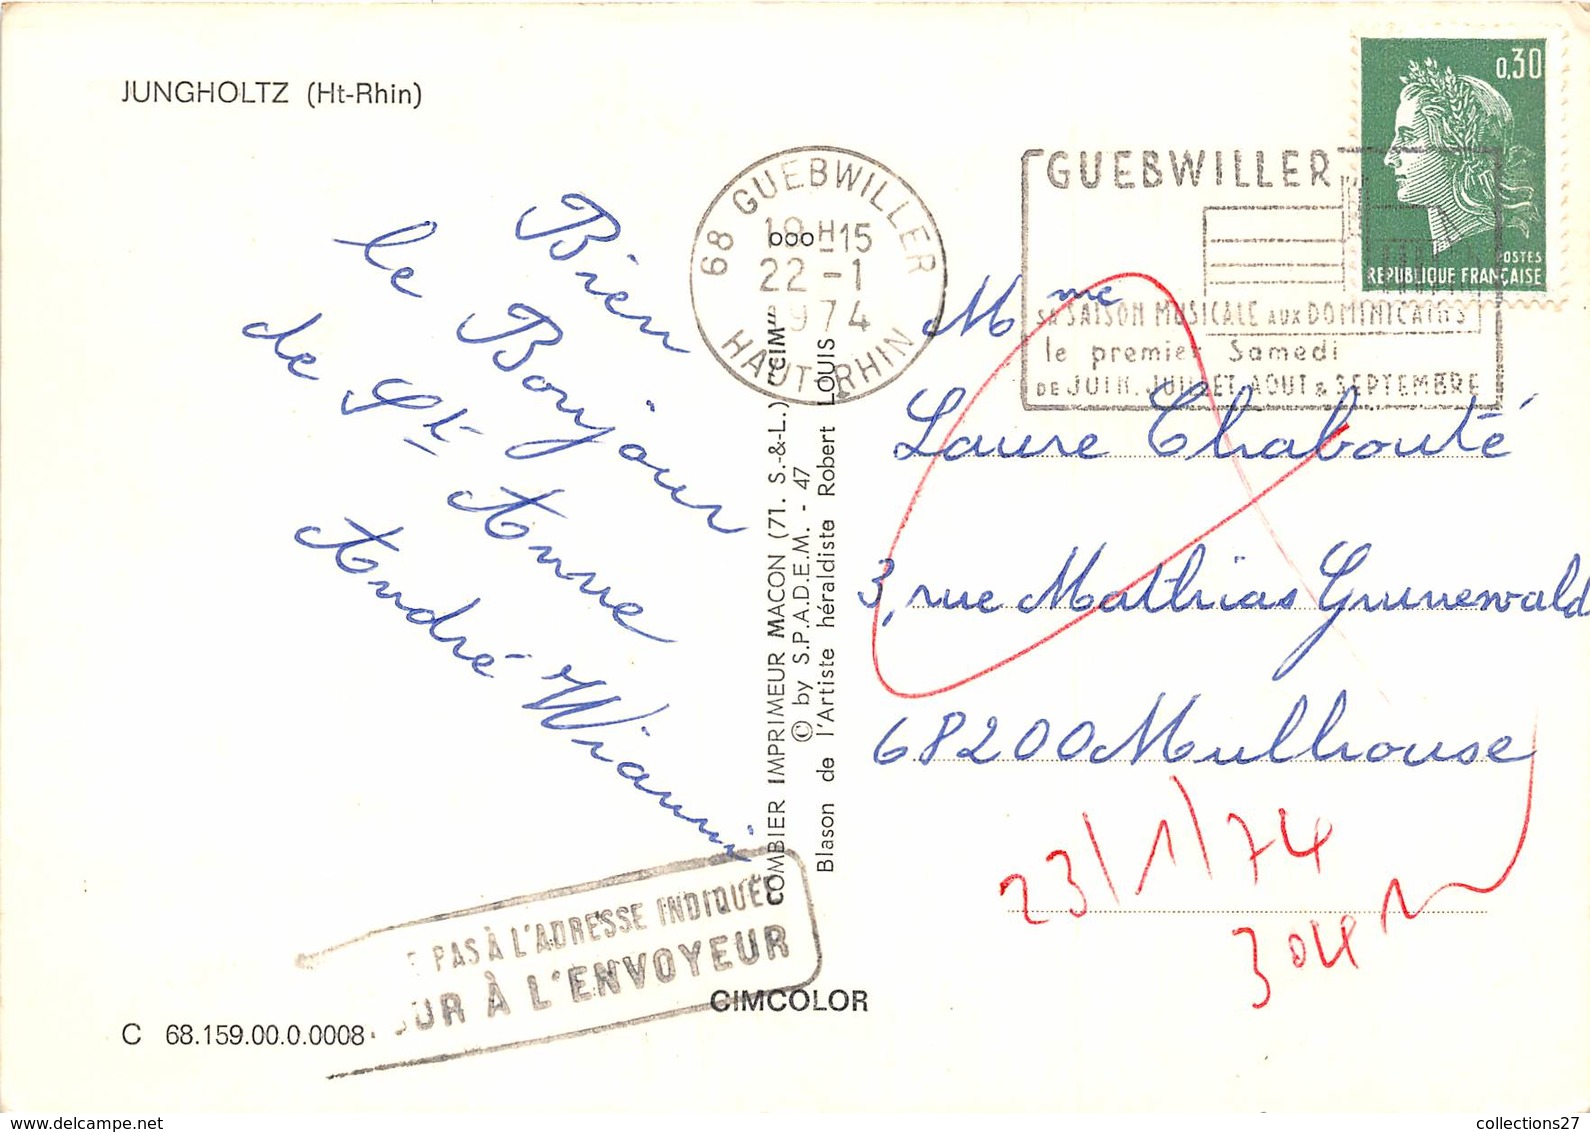 JUNGHOLTZ (Ht-Rhin)
Bien
le Bonjour
de Ste Anne
André Wianni
68 GUEBWILLER
H15
22 - 1
1974
HAUT-RHIN
GUEBWILLER
SA SAISON MUSICALE AUX DOMINICAINS
le premier Samedi
DE JUIN. JUILLET. AOUT & SEPTEMBRE
0,30
POSTES
REPUBLIQUE FRANÇAISE
COMBIER IMPRIMEUR MACON (71. S.-&-L.) "CIM"
© by S.P.A.D.E.M. - 47
Blason de l'Artiste héraldiste Robert LOUIS
Mme
Laure Chabouté
3, rue Mathias Grunewald
68200 Mulhouse
23/1/74
304
PAS À L'ADRESSE INDIQUÉE
À L'ENVOYEUR
CIMCOLOR
C 68.159.00.0.0008
collections27